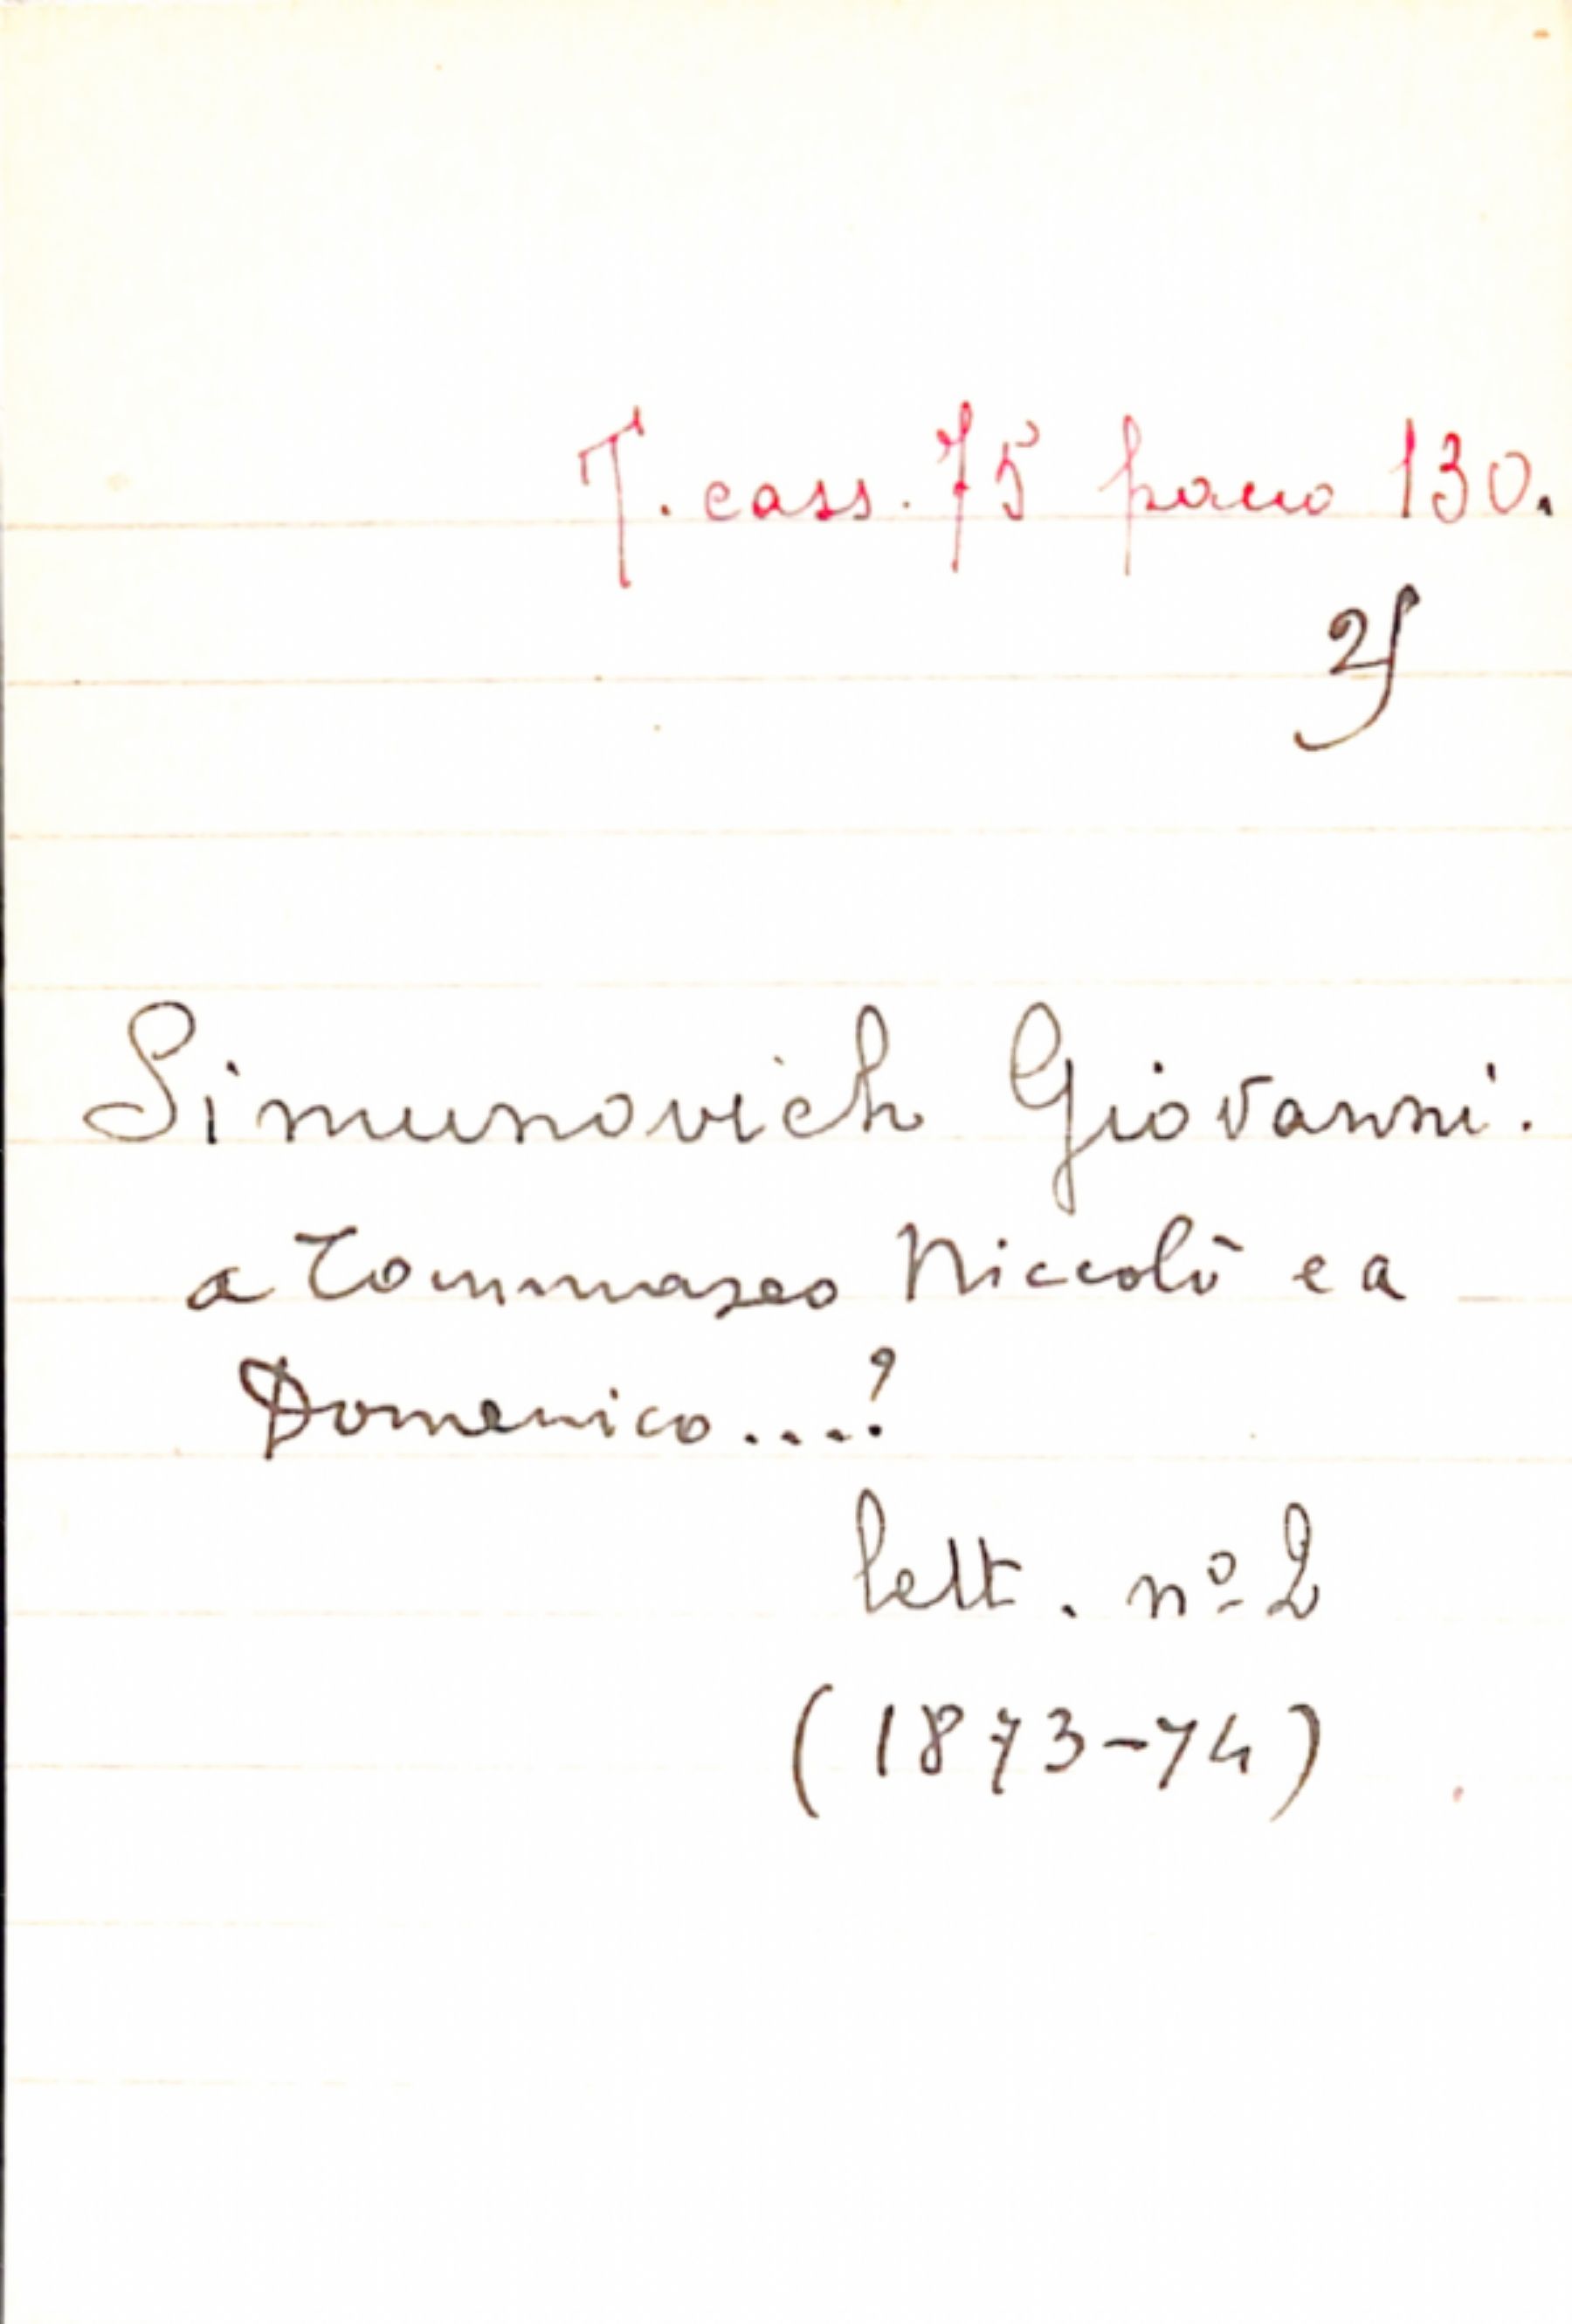 T. cass. 75 pacco 130.
2)
Simunovich Giovanni.
a Tommaseo Niccolò e a
Domenico....?
lett. nº 2
(1873-74)